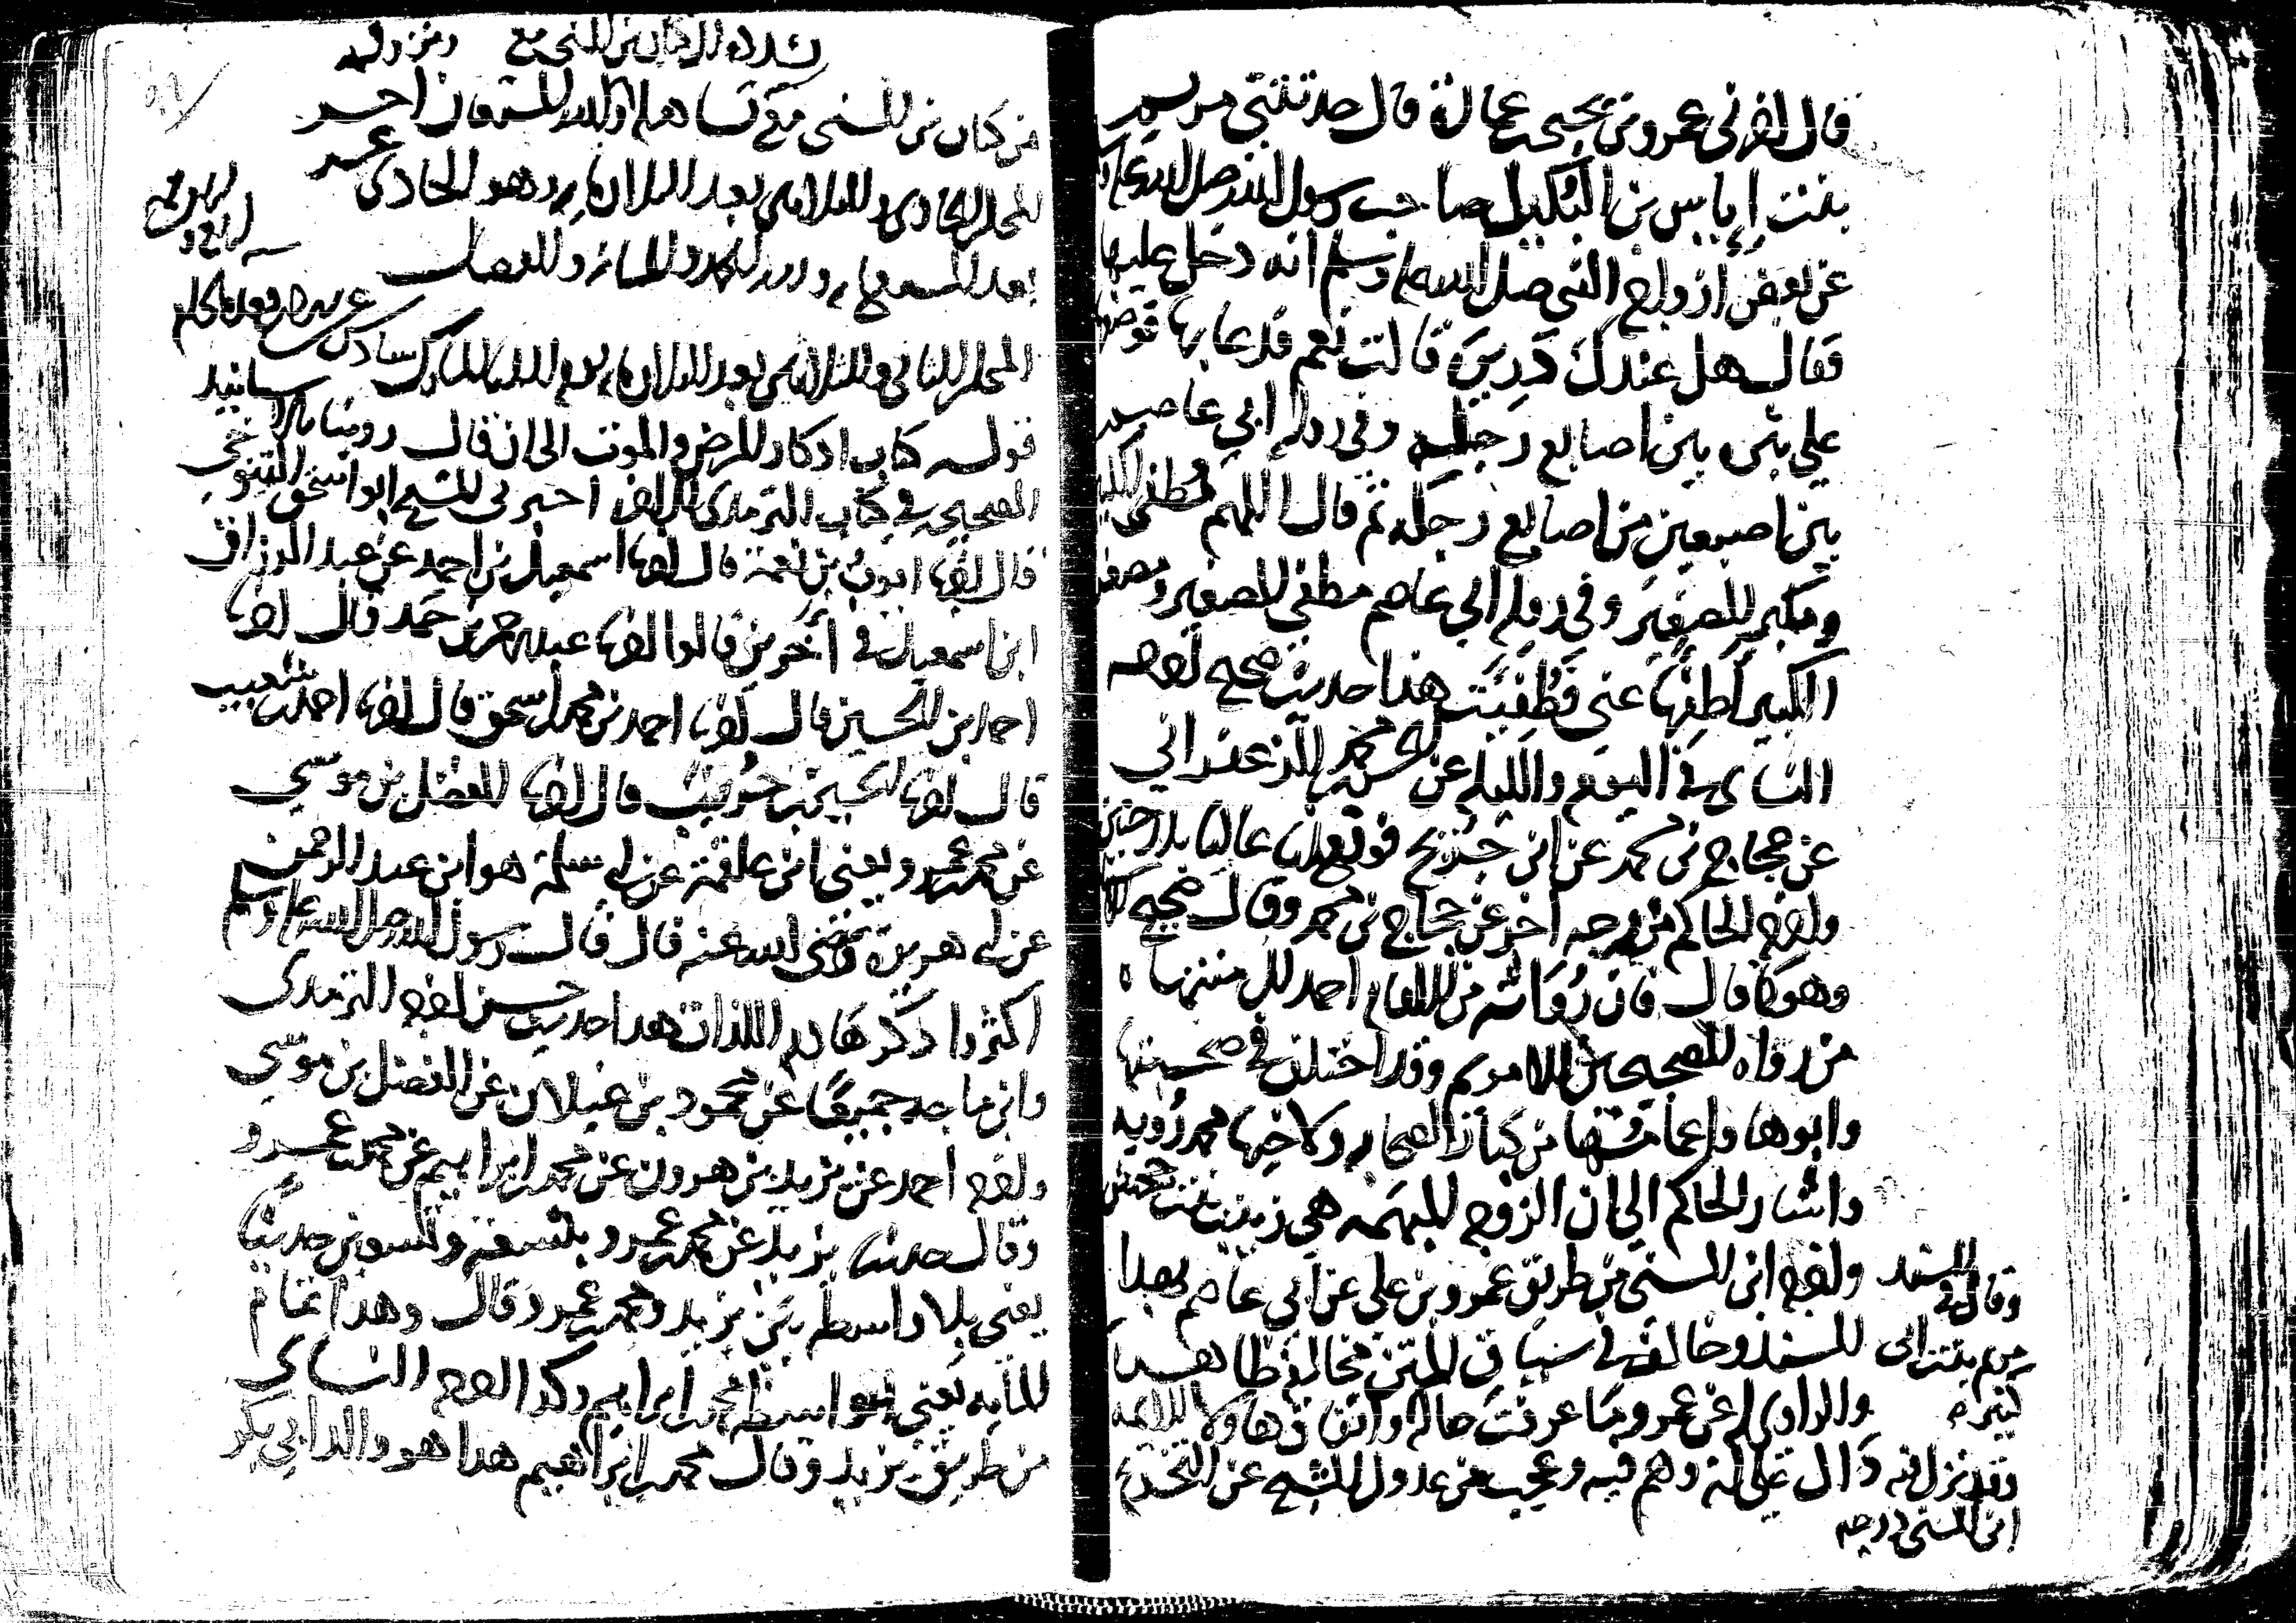 قال اخبرني عمرو بن يحيى بن عمارة قال حدثتني مريم
بنت إياس بن البكير صاحب رسول الله صلى الله عليه
عن بعض ازواج النبي صلى الله عليه وسلم انه دخل عليها
فقال هل عندك ذريرة قالت نعم فدعا بها فوضعها
على بثرة بين اصابع رجليه وفي رواية ابي عاصم
بين اصبعين من اصابع رجله ثم قال اللهم مطفئ الكبير
ومكبر الصغير وفي رواية ابي عاصم مطفئ الصغير ومصغر
الكبير أطفئها عني فطفئت هذا حديث صحيح اخرجه
النسائي في اليوم والليلة عن الحسن بن محمد الزعفراني
عن حجاج بن محمد عن ابن جريج فوقع لنا عاليا بدرجتين
واخرجه الحاكم من وجه آخر عن حجاج بن محمد وقال صحيح
وهو كما قال فان رواته من الامام احمد الى منتهاه
من رواة الصحيحين الا مريم وقد اختلف في صحبتها
وابوها واعمامها من كبار الصحابة ولاخيها محمد رؤية
واشار الحاكم الى ان الزوج المبهمة هي زينب بنت جحش
واخرجه ابن السني من طريق عمرو بن علي عن ابي عاصم بهذا
السند وخالف في سياق المتن مخالفة ظاهرة
وقال في السند
مريم بنت ابي
كثير
والراوي عن عمرو ما عرفت حاله واتفاق هاولا الائمة
دال على انه وهم فيه وعجبت من عدول الشيخ عن التخريج
ابن السني درجة
من كتاب ابن السني مع تساهله والله المستعان آخر
المجلس الحادي والثلاثين بعد الثلاثمائة وهو الحادي عشر
بعد السبعمائة
المجلس الثاني والثلاثين بعد الثلاثمائة
قوله كتاب اذكار المرض والموت الى ان قال روينا بالاسانيد
الصحيحة في كتاب الترمذي الى آخره اخبرني الشيخ ابو اسحق التنوخي
قال اخبرنا ايوب بن نعمة قال اخبرنا اسمعيل بن احمد عن عبد الرزاق
ابن اسمعيل في آخرين قالوا اخبرنا عبد الرحمن بن حمد قال اخبرنا
احمد بن الحسين قال اخبرنا احمد بن محمد بن اسحق قال اخبرنا احمد بن شعيب
قال اخبرنا الحسين بن حريث قال اخبرنا الفضل بن موسى
عن محمد بن عمرو يعني ابن علقمة عن ابي سلمة هو ابن عبد الرحمن
عن ابي هريرة رضي الله عنه قال قال رسول الله صلى الله عليه وسلم
اكثروا ذكر هاذم اللذات هذا حديث حسن اخرجه الترمذي
وابن ماجه جميعا عن محمود بن غيلان عن الفضل بن موسى
واخرجه احمد عن يزيد بن هرون عن محمد بن ابراهيم عن محمد بن عمرو
وقال حدثنا يزيد عن محمد بن عمرو بتسعة وتسعين حديثا
يعني بلا واسطة بين يزيد ومحمد بن عمرو وقال وهذا تمام
المائة يعني بواسطة محمد بن ابراهيم وكذا اخرجه النسائي
من طريق يزيد وقال محمد بن ابراهيم هذا هو والد ابي بكر